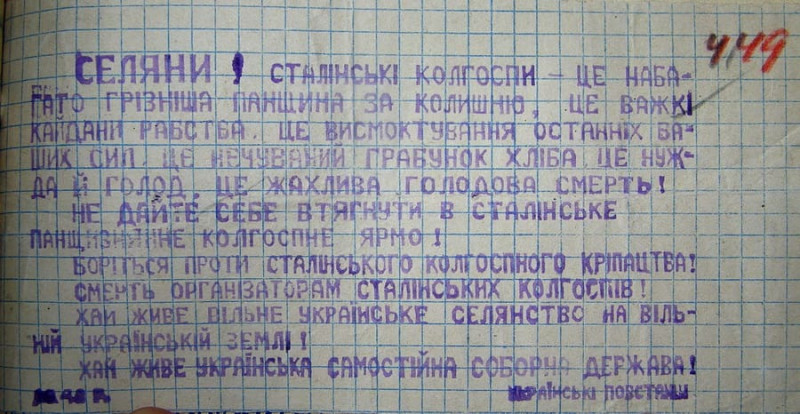 4.49
СЕЛЯНИ! СТАЛІНСЬКІ КОЛГОСПИ – ЦЕ НАБА-
ГАТО ГРІЗНІША ПАНЩИНА ЗА КОЛИШНЮ, ЦЕ ВАЖКІ
КАЙДАНИ РАБСТВА. ЦЕ ВИСМОКТУВАННЯ ОСТАННІХ ВА-
ШИХ СИЛ. ЦЕ НЕЧУВАНИЙ ГРАБУНОК ХЛІБА. ЦЕ НУЖ-
ДА Й ГОЛОД, ЦЕ ЖАХЛИВА ГОЛОДОВА СМЕРТЬ!
НЕ ДАЙТЕ СЕБЕ ВТЯГНУТИ В СТАЛІНСЬКЕ
КОЛГОСПНЕ ЯРМО!
БОРІТЬСЯ ПРОТИ СТАЛІНСЬКОГО КОЛГОСПНОГО КРІПАЦТВА!
СМЕРТЬ ОРГАНІЗАТОРАМ СТАЛІНСЬКИХ КОЛГОСПІВ!
ХАЙ ЖИВЕ ВІЛЬНЕ УКРАЇНСЬКЕ СЕЛЯНСТВО НА ВІЛЬ-
НІЙ УКРАЇНСЬКІЙ ЗЕМЛІ!
ХАЙ ЖИВЕ УКРАЇНСЬКА САМОСТІЙНА СОБОРНА ДЕРЖАВА!
1948 Р. УКРАЇНСЬКІ ПОВСТАНЦІ